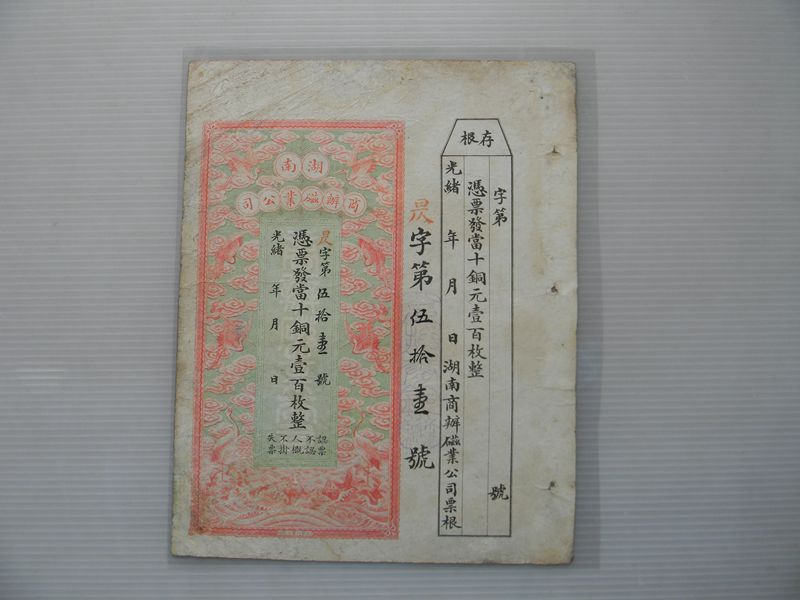 存根
字第　號
憑票發當十銅元壹百枚整
光緒　年　月　日湖南商辦磁業公司票根
字第伍拾壹號
湖南
商辦磁業公司
字第伍拾壹號
憑票發當十銅元壹百枚整
光緒　年　月　日
認票
不認
人概
不掛
失票